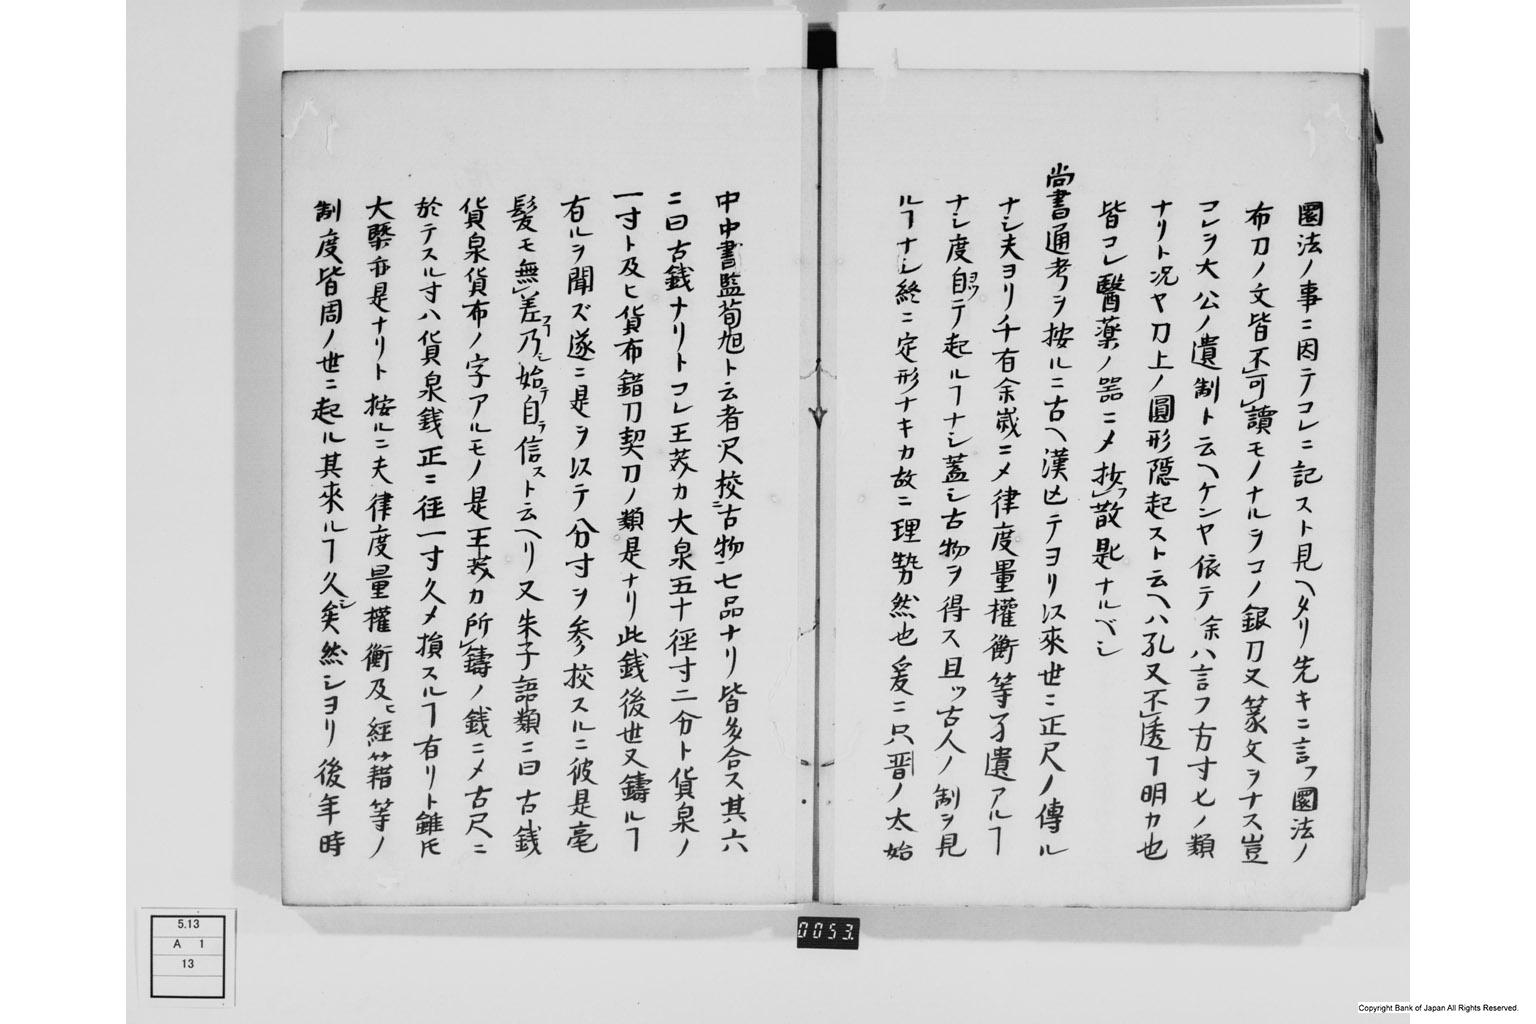 圜法ノ事ニ因テコレニ記スト見ヘタリ先キニ言フ圜法ノ
布刀ノ文皆不可讀モノナルヲコノ銀刀又篆文ヲナス豈
コレヲ大公ノ遺制ト云ヘケンヤ依テ余ハ言フ方寸匕ノ類
ナリト况ヤ刀上ノ圓形隠起スト云ヘハ孔又不透ヿ明カ也
皆コレ醫薬ノ噐ニメ抄散匙ナルベシ
尚書通考ヲ按ルニ古ヘ漢亡テヨリ以來世ニ正尺ノ傳ル
ナシ夫ヨリ千有余歳ニメ律度量權衡等孑遺アルヿ
ナシ度自ヨツテ起ルヿナシ蓋シ古物ヲ得ス且ツ古人ノ制ヲ見
ルヿナシ終ニ定形ナキカ故ニ理勢然也爰ニ只晋ノ太始
中中書監荀旭ト云者尺校ニ古物七品ナリ皆多合ス其六
ニ曰古銭ナリトコレ王莽カ大泉五十徑寸二分ト貨泉ノ
一寸ト及ヒ貨布錯刀契刀ノ類是ナリ此銭後世又鑄ルヿ
有ルヲ聞ズ遂ニ是ヲ以テ分寸ヲ参挍スルニ彼是毫
髪モ無差フヿシ乃始テ自ラ信ストト云ヘリ又朱子語類ニ曰古銭
貨泉貨布ノ字アルモノ是王莽カ所鑄ノ銭ニメ古尺ニ
於テスル寸ハ貨泉銭正ニ徑一寸久メ損スルヿ有リト雖𪜈
大槩亦是ナリト按ルニ夫律度量權衡及ヒ經籍等ノ
制度皆周ノ世ニ起ル其來ルヿ久シ矣然シヨリ後年時
5.13
A 1
13
0053
Copyright Bank of Japan All Rights Reserved.